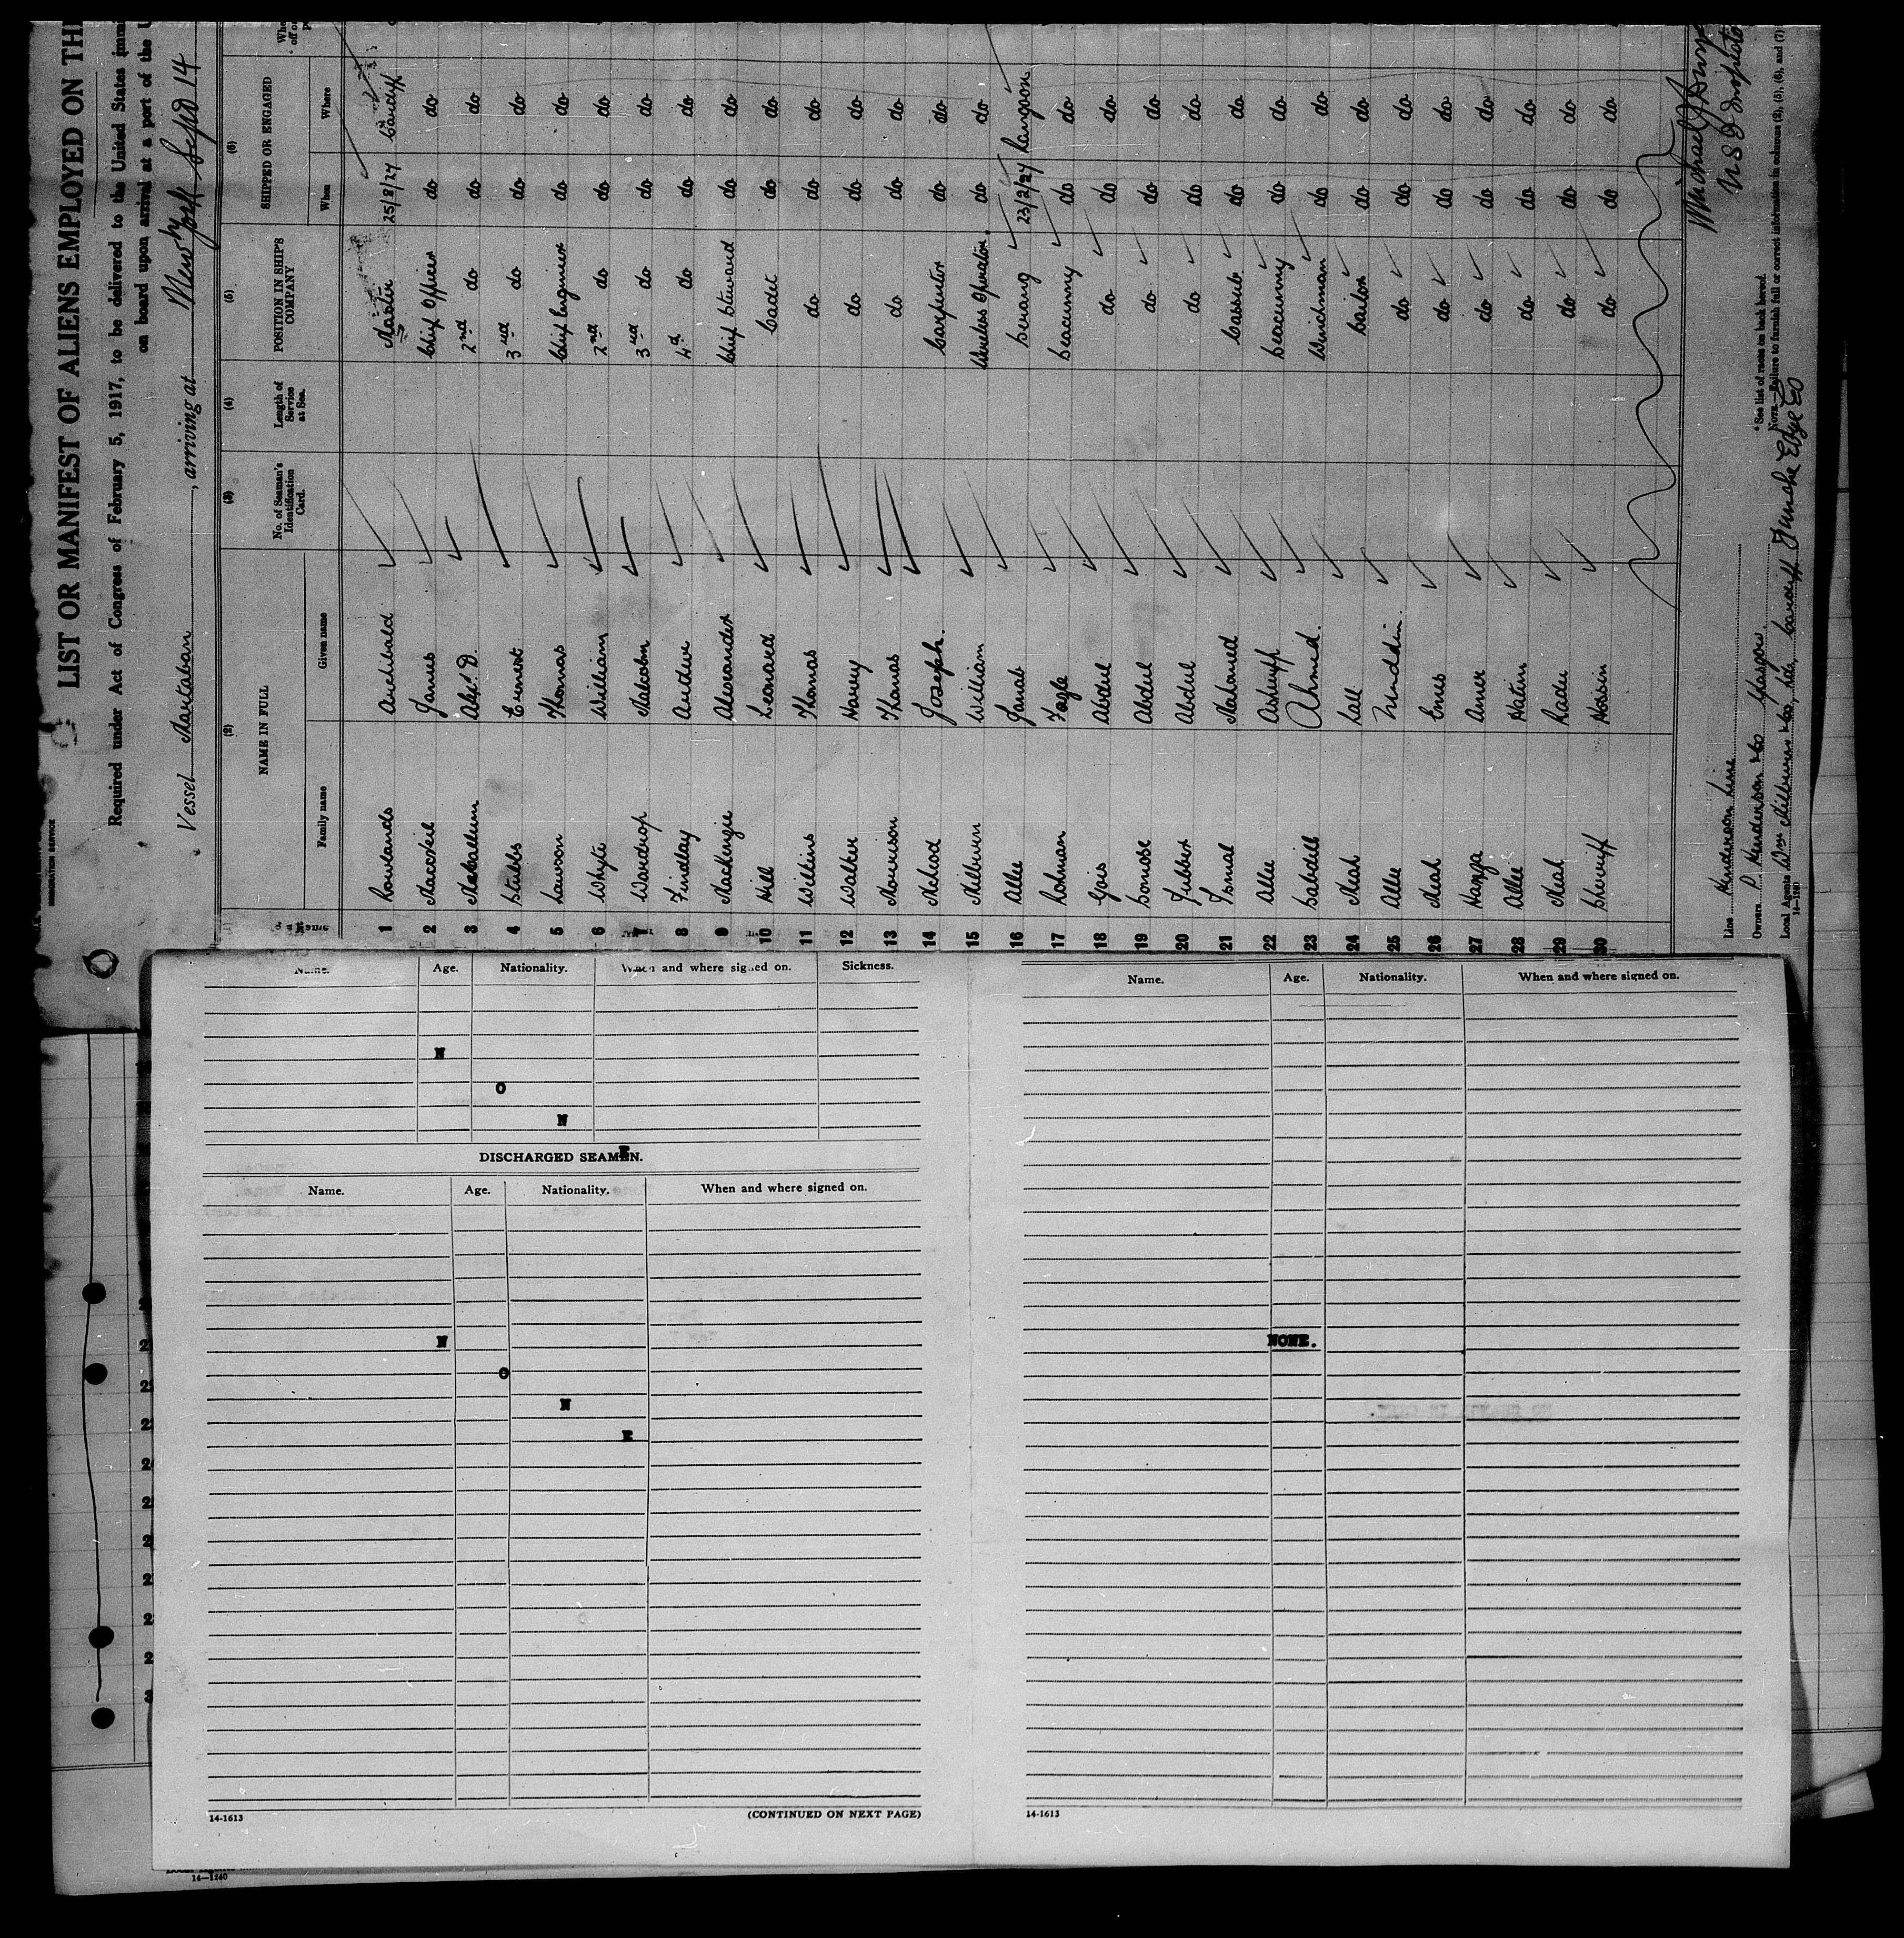 LIST OR MANIFEST OF ALIENS EMPLOYED ON TH
Required under Act of Congress of February 5, 1917, to be delivered to the United States
on board upon arrival at a port of the U
Vessel Martaban, arriving at New York Sept 14
(2) (3) (4) (5) (6)
NAME IN FULL No. of Seaman's Identification Card. Length of Service at Sea. POSITION IN SHIP'S COMPANY SHIPPED OR ENGAGED
Family name Given name When Where
1 Rowlands Archibald Master 25/8/24 Cardiff
2 Mackie James Chief Officer do do
3 McCallum Alexr D. 2nd do do do
4 Stubbs Ernest 3rd do do do
5 Lawson Thomas Chief Engineer do do
6 Whyte William 2nd do do do
7 Wardrop Malcolm 3rd do do do
8 Findlay Andrew 4th do do do
9 MacKenzie Alexander Chief Steward do do
10 Hill Leonard Cadet do do
11 Wilkins Thomas do do do
12 Walker Harry do do do
13 Morrison Thomas do do do
14 McLeod Joseph. Carpenter do do
15 Milburn William Wireless Operator. do do
16 Allee Janab Serang 23/2/24 Rangoon
17 Rohman Fazle Seacunny do do
18 Gois Abdul do do do
19 Somose Abdul do do do
20 Jubber Abdul do do do
21 Ismal Mahomed Cassub do do
22 Allee Ashruff Seacunny do do
23 Sabdill Ahmed. Winchman do do
24 Meah Lall Sailor do do
25 Allee Nuddin. do do do
26 Meah Enus do do do
27 Hanza Amer do do do
28 Allee Hatim do do do
29 Meah Radu do do do
30 Sheriff Hossin do do do
Line Henderson Line
Owners P Henderson & Co Glasgow.
Local Agents Wm Milburn & Co, Ltd, Cardiff Funche Edye Co
14-1240
* See list of races on back hereof.
NOTE.—Failure to furnish full or correct information in columns (2), (5), (6), and (7)
Name. Age. Nationality. When and where signed on. Sickness.
N
O
N
E
DISCHARGED SEAMEN.
Name. Age. Nationality. When and where signed on.
N
O
N
E
14-1613 (CONTINUED ON NEXT PAGE)
Name. Age. Nationality. When and where signed on.
NONE.
14-1613
14—1240